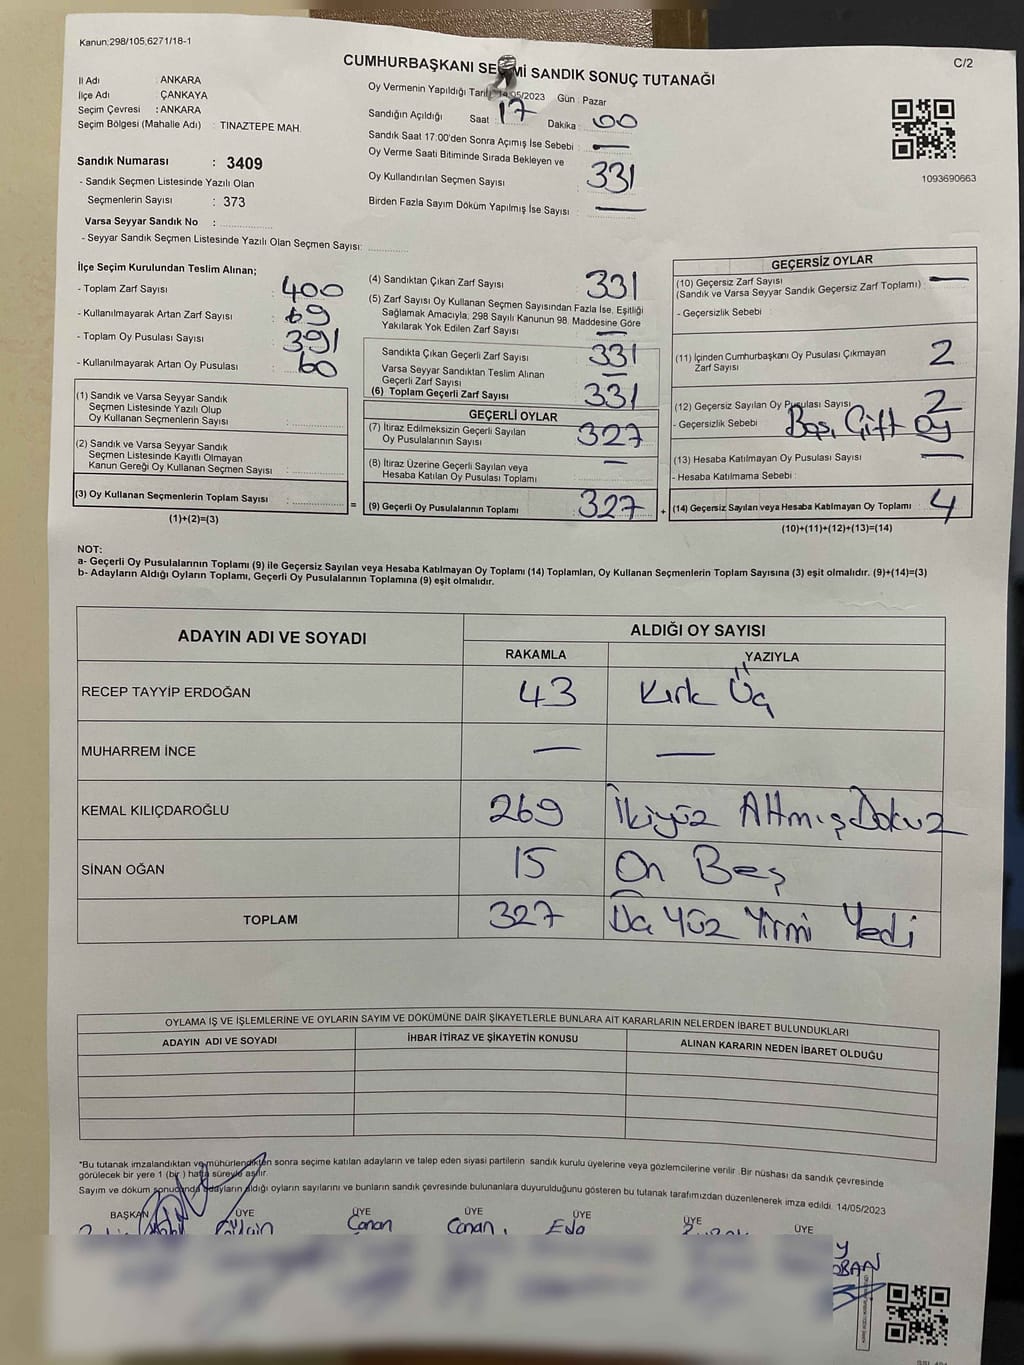 Kanun:298/105,6271/18-1
C/2
CUMHURBAŞKANI SE Mİ SANDIK SONUÇ TUTANAĞI
İl Adı : ANKARA
İlçe Adı : ÇANKAYA
Seçim Çevresi : ANKARA
Seçim Bölgesi (Mahalle Adı) : TINAZTEPE MAH.
Sandık Numarası : 3409
- Sandık Seçmen Listesinde Yazılı Olan
Seçmenlerin Sayısı : 373
Varsa Seyyar Sandık No :
- Seyyar Sandık Seçmen Listesinde Yazılı Olan Seçmen Sayısı:
Oy Vermenin Yapıldığı Tarih 14.05/2023 Gün : Pazar
Sandığın Açıldığı Saat : 17 Dakika : 00
Sandık Saat 17:00'den Sonra Açımış İse Sebebi : —
Oy Verme Saati Bitiminde Sırada Bekleyen ve
Oy Kullandırılan Seçmen Sayısı : 331
Birden Fazla Sayım Döküm Yapılmış İse Sayısı : —
1093690663
İlçe Seçim Kurulundan Teslim Alınan;
- Toplam Zarf Sayısı : 400
- Kullanılmayarak Artan Zarf Sayısı : 69
- Toplam Oy Pusulası Sayısı : 391
- Kullanılmayarak Artan Oy Pusulası : 60
(1) Sandık ve Varsa Seyyar Sandık
Seçmen Listesinde Yazılı Olup
Oy Kullanan Seçmenlerin Sayısı :
(2) Sandık ve Varsa Seyyar Sandık
Seçmen Listesinde Kayıtlı Olmayan
Kanun Gereği Oy Kullanan Seçmen Sayısı :
(3) Oy Kullanan Seçmenlerin Toplam Sayısı :
(1)+(2)=(3)
=
(4) Sandıktan Çıkan Zarf Sayısı : 331
(5) Zarf Sayısı Oy Kullanan Seçmen Sayısından Fazla İse, Eşitliği
Sağlamak Amacıyla; 298 Sayılı Kanunun 98. Maddesine Göre
Yakılarak Yok Edilen Zarf Sayısı : —
Sandıkta Çıkan Geçerli Zarf Sayısı : 331
Varsa Seyyar Sandıktan Teslim Alınan
Geçerli Zarf Sayısı : —
(6) Toplam Geçerli Zarf Sayısı : 331
GEÇERLİ OYLAR
(7) İtiraz Edilmeksizin Geçerli Sayılan
Oy Pusulalarının Sayısı : 327
(8) İtiraz Üzerine Geçerli Sayılan veya
Hesaba Katılan Oy Pusulası Toplamı : —
(9) Geçerli Oy Pusulalarının Toplamı : 327
+
GEÇERSİZ OYLAR
(10) Geçersiz Zarf Sayısı
(Sandık ve Varsa Seyyar Sandık Geçersiz Zarf Toplamı) : —
- Geçersizlik Sebebi :
(11) İçinden Cumhurbaşkanı Oy Pusulası Çıkmayan
Zarf Sayısı : 2
(12) Geçersiz Sayılan Oy Pusulası Sayısı : 2
- Geçersizlik Sebebi : Boş, Çift oy
(13) Hesaba Katılmayan Oy Pusulası Sayısı : —
- Hesaba Katılmama Sebebi :
(14) Geçersiz Sayılan veya Hesaba Katılmayan Oy Toplamı : 4
(10)+(11)+(12)+(13)=(14)
NOT:
a- Geçerli Oy Pusulalarının Toplamı (9) ile Geçersiz Sayılan veya Hesaba Katılmayan Oy Toplamı (14) Toplamları, Oy Kullanan Seçmenlerin Toplam Sayısına (3) eşit olmalıdır. (9)+(14)=(3)
b- Adayların Aldığı Oyların Toplamı, Geçerli Oy Pusulalarının Toplamına (9) eşit olmalıdır.
ADAYIN ADI VE SOYADI
ALDIĞI OY SAYISI
RAKAMLA YAZIYLA
RECEP TAYYİP ERDOĞAN 43 Kırk Üç
MUHARREM İNCE — —
KEMAL KILIÇDAROĞLU 269 İkiyüz Altmış Dokuz
SİNAN OĞAN 15 On Beş
TOPLAM 327 Yüz Yirmi Yedi
OYLAMA İŞ VE İŞLEMLERİNE VE OYLARIN SAYIM VE DÖKÜMÜNE DAİR ŞİKAYETLERLE BUNLARA AİT KARARLARIN NELERDEN İBARET BULUNDUKLARI
ADAYIN ADI VE SOYADI İHBAR İTİRAZ VE ŞİKAYETİN KONUSU ALINAN KARARIN NEDEN İBARET OLDUĞU
*Bu tutanak imzalandıktan ve mühürlendikten sonra seçime katılan adayların ve talep eden siyasi partilerin sandık kurulu üyelerine veya gözlemcilerine verilir. Bir nüshası da sandık çevresinde
görülecek bir yere 1 (bir ) hafta süreyle asılır.
Sayım ve döküm sonucunda adayların aldığı oyların sayılarını ve bunların sandık çevresinde bulunanlara duyurulduğunu gösteren bu tutanak tarafımızdan düzenlenerek imza edildi. 14/05/2023
BAŞKAN ÜYE ÜYE ÜYE ÜYE ÜYE ÜYE
Canan Canan Eda